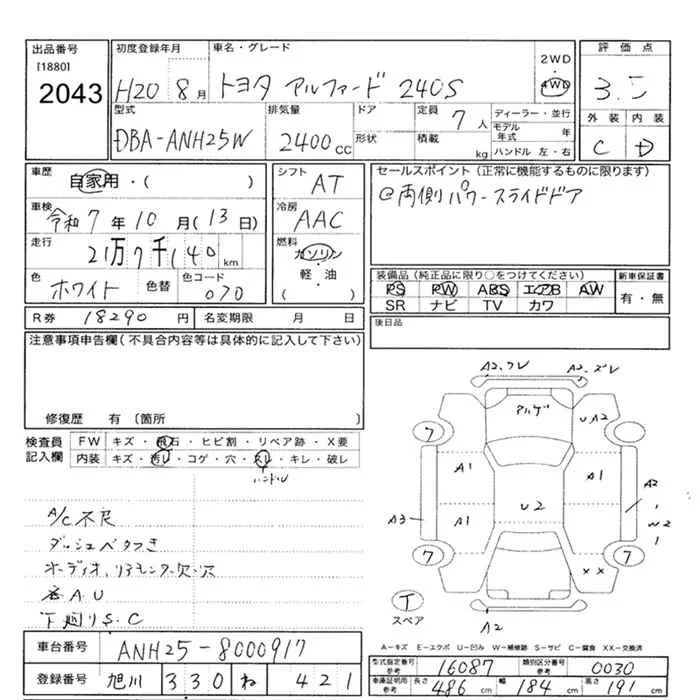 出品番号 初度登録年月 車名・グレード 2WD 評価点
[1880] H20 8月 トヨタ アルファード 240S 4WD 3.5
2043 型式 排気量 ドア 定員 7人 ディーラー・並行 外装 内装
DBA-ANH25W 2400cc 形状 積載 kg モデル年式 年 C D
ハンドル 左・右
車歴 自家用・( ) シフト AT セールスポイント(正常に機能するものに限ります)
車検 令和7年10月(13日) 冷房 AAC @両側パワースライドドア
走行 21万7千140km 燃料 ガソリン・軽油 ( )
色 ホワイト 色替 色コード 070
装備品(純正品に限り○をつけてください) 新車保証書
PS PW ABS エアB AW 有・無
SR ナビ TV カワ
R券 18290円 名変期限 月 日 後日品
注意事項申告欄(不具合内容等は具体的に記入して下さい)
修復歴 有(箇所
検査員記入欄 FW キズ・飛石・ヒビ割・リペア跡・X要
内装 キズ・汚レ・コゲ・穴・スレ・キレ・破レ
ハンドル
A/C不良
ダッシュベタつき
下廻りS.C
A2.フレ A2.ズレ
アルゲ UA2
7
A1 A1 A2
U2 W2
A3 A1
7 7
XX
T
スペア
A2
A-キズ E-エクボ U-凹み W-補修跡 S-サビ C-腐食 XX-交換済
車台番号 ANH25-8000917
型式指定番号 参考 16087 類別区分番号 参考 0030
登録番号 旭川 330 ね 421
車庫証明用 参考 長さ 486cm 幅 184cm 高さ 191cm